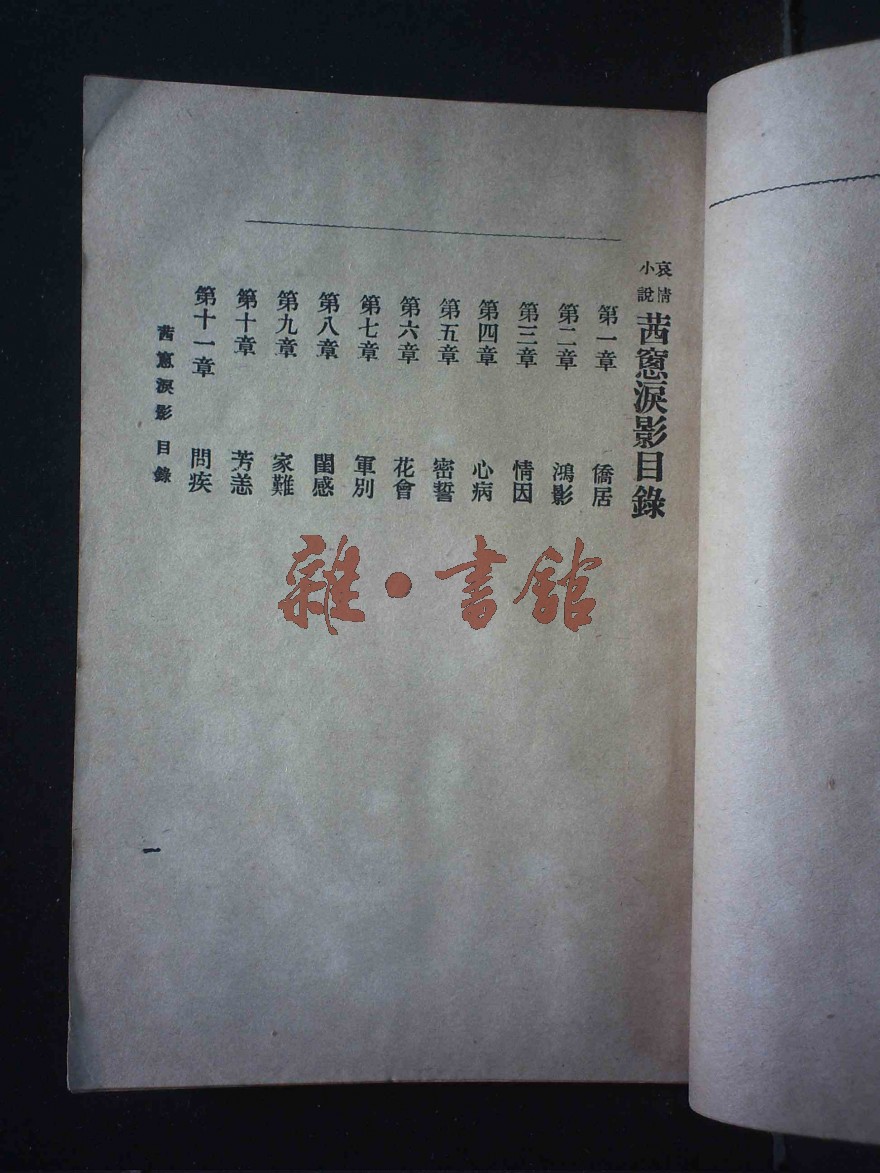 哀情小說 茜窻淚影目錄
第一章 僑居
第二章 鴻影
第三章 情因
第四章 心病
第五章 密誓
第六章 花會
第七章 軍別
第八章 閨感
第九章 家難
第十章 芳恙
第十一章 問疾
茜窻淚影 目錄
一
雜·書館